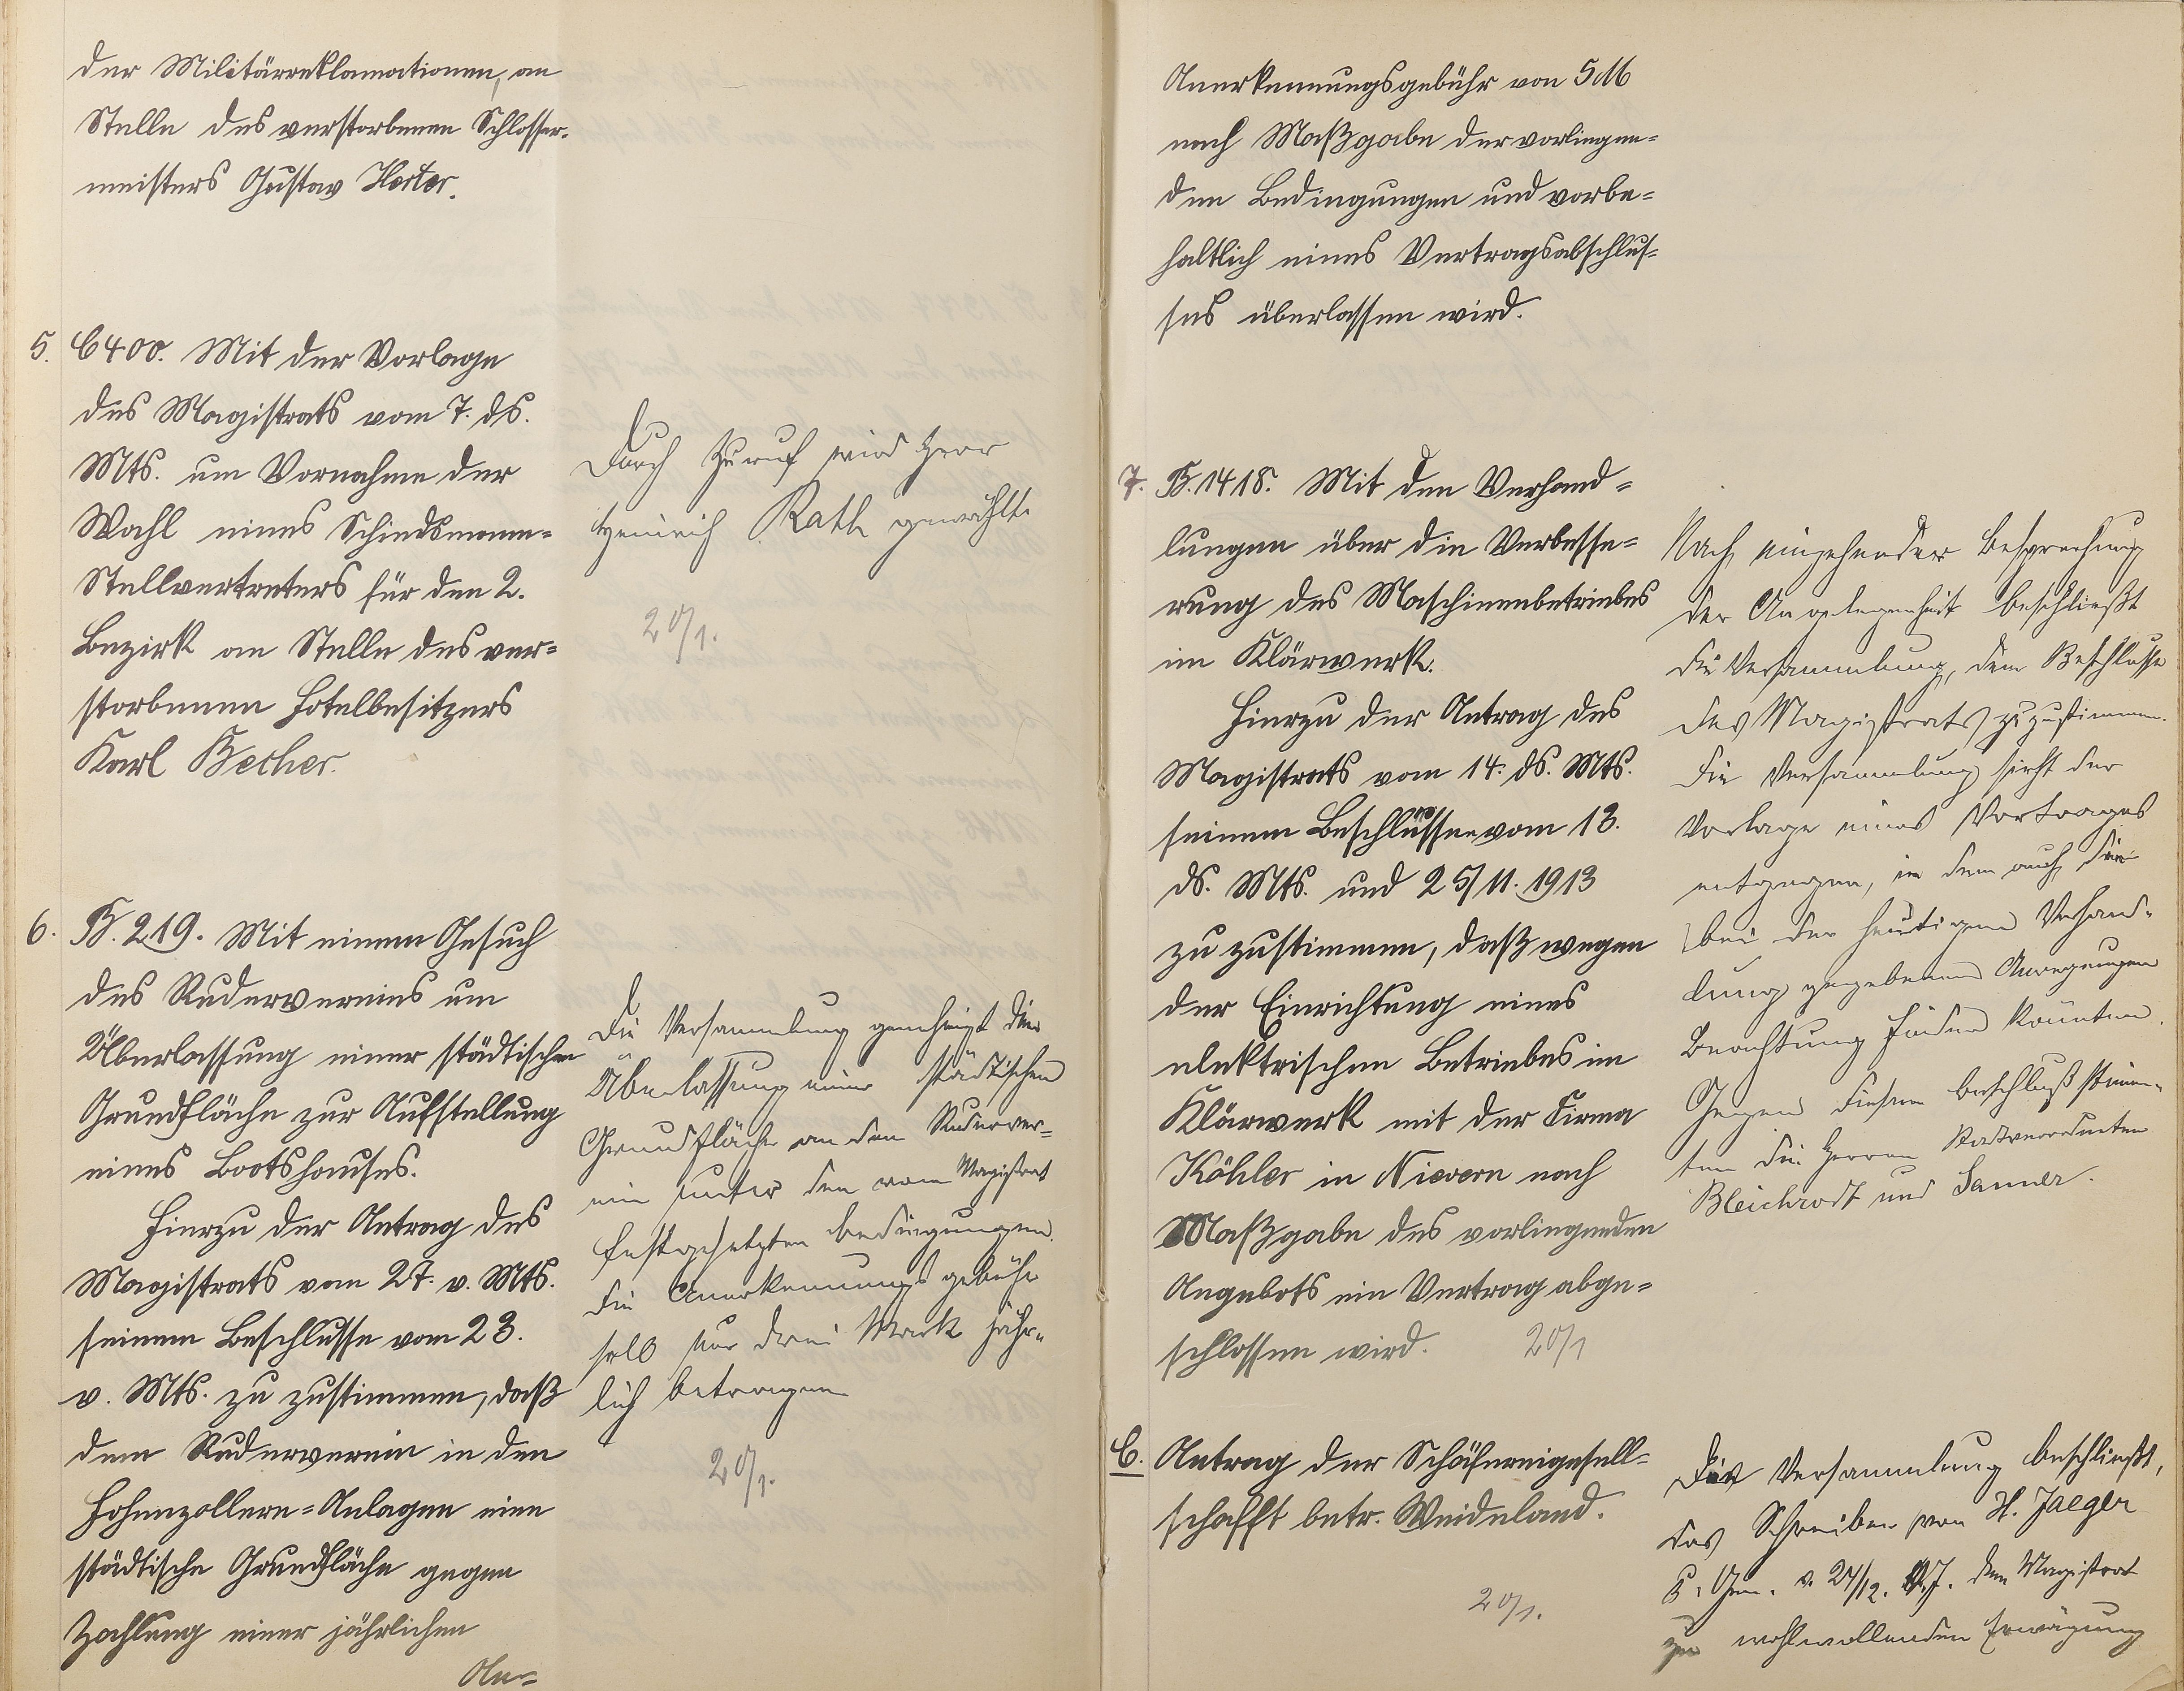 der Militärreklamationen, an
Stelle des verstorbenen Schlosser-
meisters Gustav Herter.
5. C 400. Mit der Vorlage
des Magistrats vom 7. ds.
Mts. um Vornahme der
Wahl eines Schiedsmann-
Stellvertreters für den 2.
Bezirk an Stelle des ver-
storbenen Hotelbesitzers
Karl Becher.
Durch Zuruf wird Herr
Heinrich Rath gewählt.
20/1.
6. B. 219. Mit einem Gesuch
des Rudervereins um
Überlassung einer städtischen
Grundfläche zur Aufstellung
eines Bootshauses.
Hierzu der Antrag des
Magistrats vom 27. v. Mts.
seinem Beschlusse vom 23.
v. Mts. zu zustimmen, daß
dem Ruderverein in den
Hohenzollern-Anlagen eine
städtische Grundfläche gegen
Zahlung einer jährlichen
An-
Die Versammlung genehmigt die
Überlassung einer städtischen
Grundfläche an den Ruderver-
ein unter den vom Magistrat
festgesetzten Bedingungen.
Die Anerkennungsgebühr
soll nur drei Mark jähr-
lich betragen
20/1.
Anerkennungsgebühr von 5 M
nach Maßgabe der vorliegen-
den Bedingungen und vorbe-
haltlich eines Vertragsabschlus-
ses überlassen wird.
7. B. 1418. Mit den Verhand-
lungen über die Verbesse-
rung des Maschinenbetriebes
im Klärwerk.
Hierzu der Antrag des
Magistrats vom 14. ds. Mts.
seinen Beschlüssen vom 13.
ds. Mts. und 25/11. 1913
zu zustimmen, daß wegen
der Einrichtung eines
elektrischen Betriebes im
Klärwerk mit der Firma
Köhler in Nievern nach
Maßgabe des vorliegenden
Angebots ein Vertrag abge-
schlossen wird. 20/1
Nach eingehender Besprechung
der Angelegenheit beschließt
die Versammlung, dem Beschlusse
des Magistrats zuzustimmen.
Die Versammlung sieht der
Vorlage eines Vertrages
entgegen, in dem auch die
bei der heutigen Verhand-
lung gegebenen Anregungen
Beachtung finden könnten.
Gegen diesen Beschluß stimm-
ten die Herren Stadtverordneten
Bleichrodt und Sanner.
C. Antrag der Schäfereigesell-
schafft betr. Weideland.
20/1.
Die Versammlung beschließt,
das Schreiben von H. Jaeger
u. Gen. v. 27/12. v. J. dem Magistrat
zur wohlwollenden Erwägung